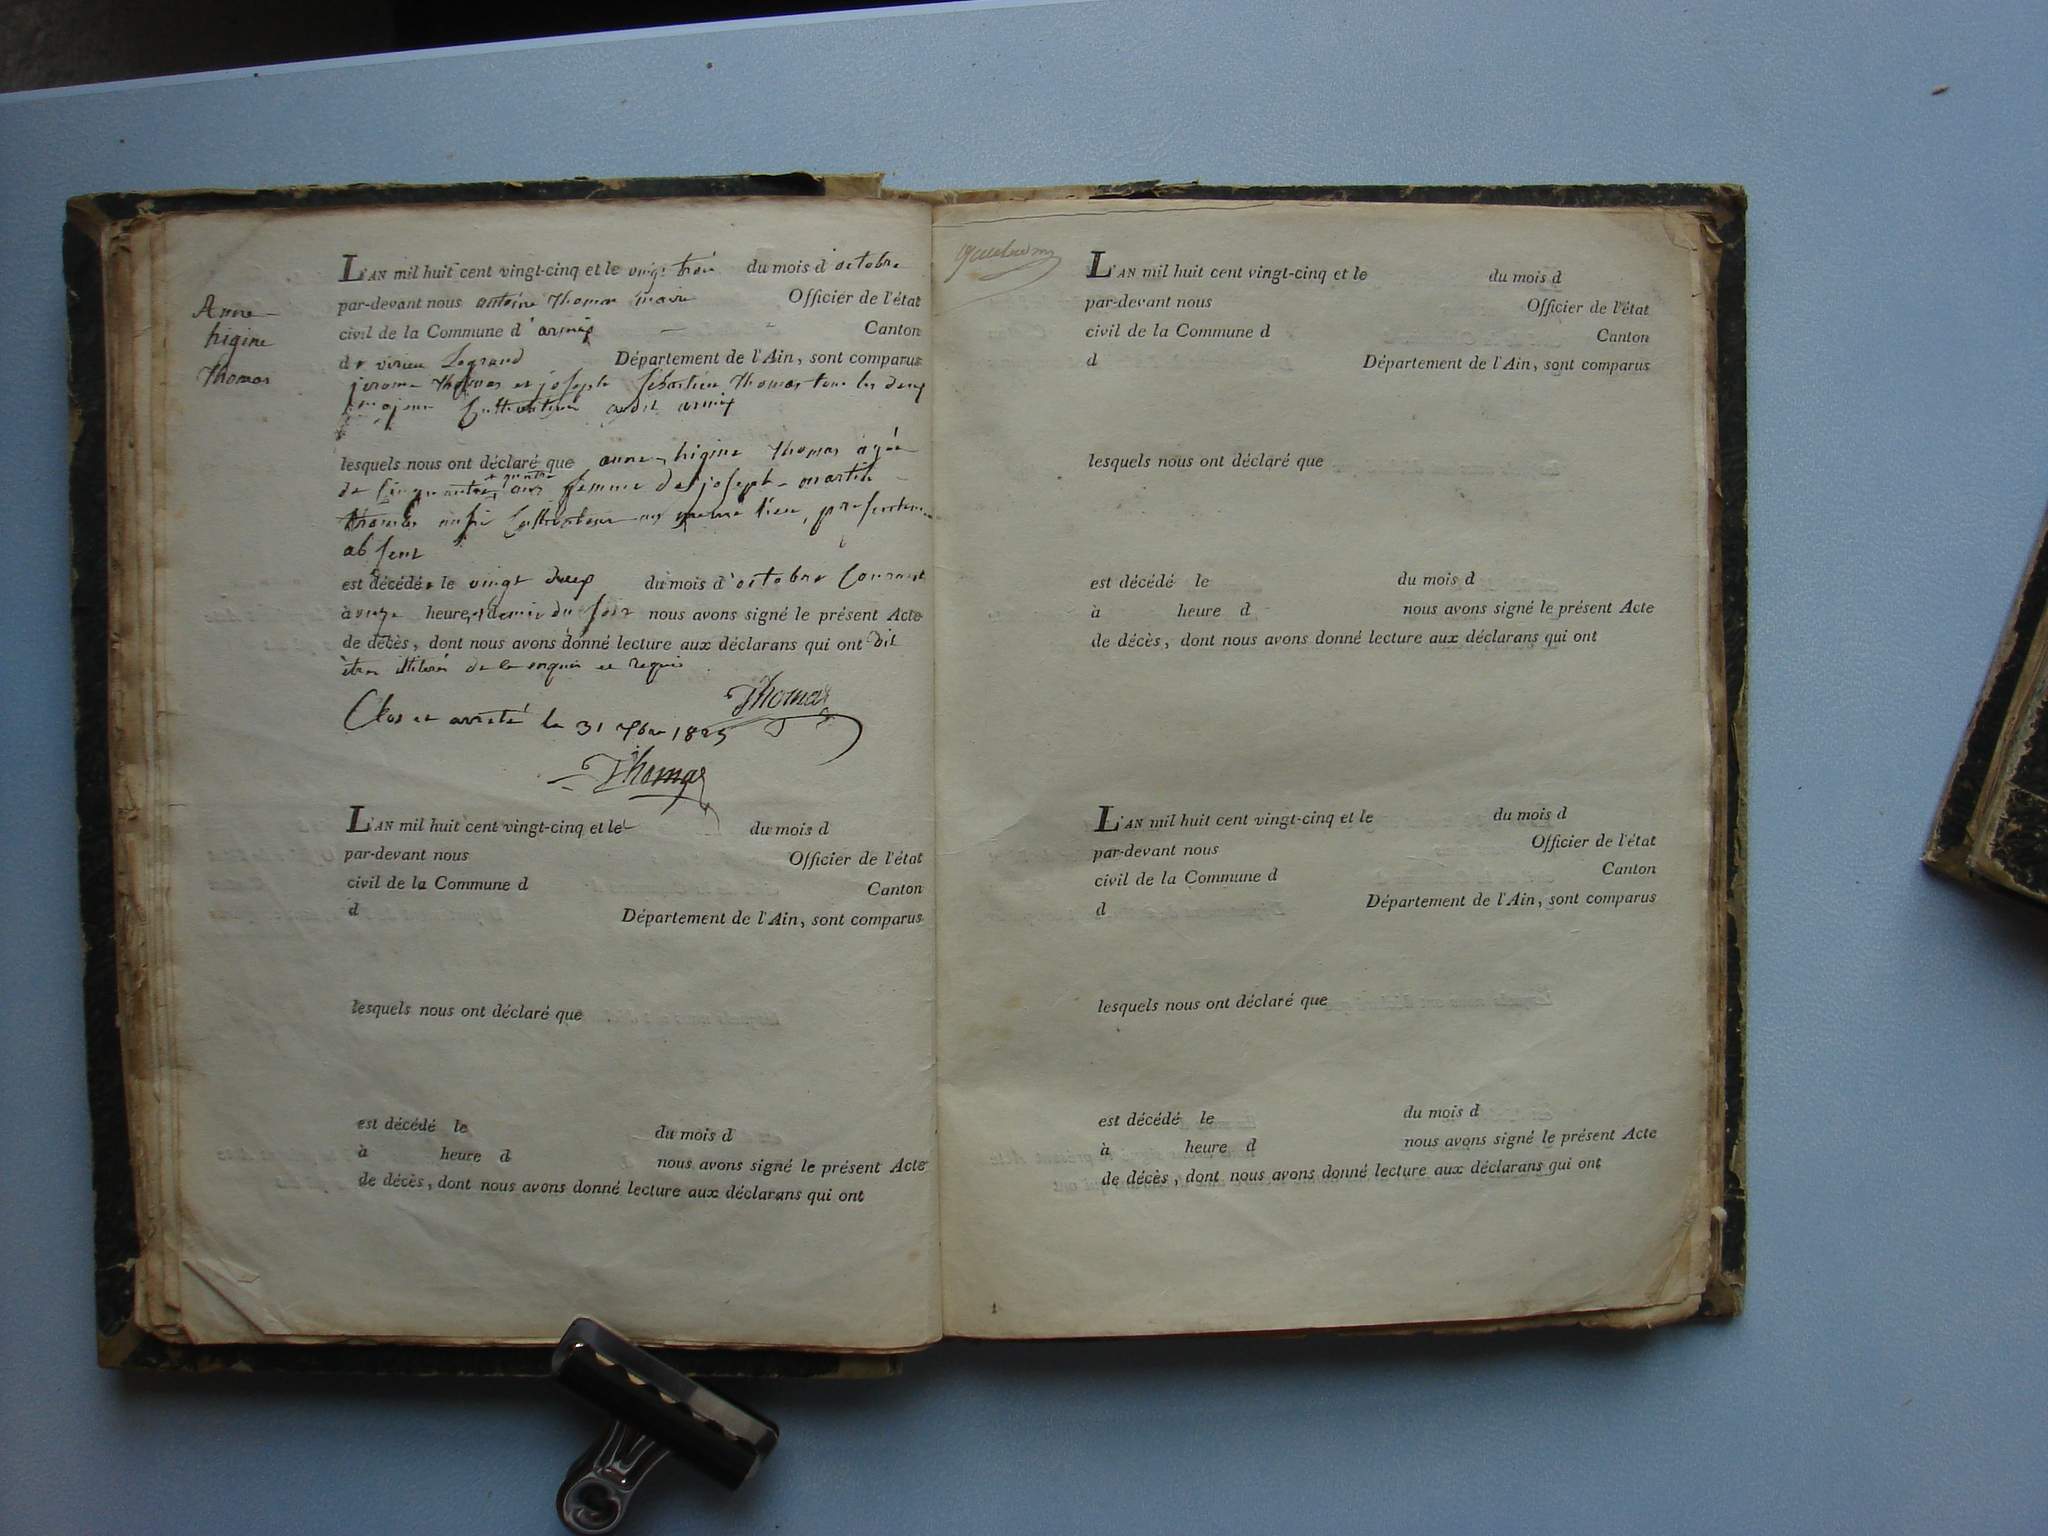 Anne
higine
Thomas
L'AN mil huit cent vingt-cinq et le vingt trois du mois d octobre
par-devant nous antoine Thomas maire Officier de l'état
civil de la Commune d'armix Canton
de virieu Legrand Département de l'Ain, sont comparus
jerome Thomas et joseph sébastien Thomas tous les deux
majeurs Cultivateurs audit armix
lesquels nous ont déclaré que anne higine Thomas agée
de Cinquante et quatre ans femme de joseph martin
Thomas aussi Cultivateur au meme lieu,
absent
est décédée le vingt deux du mois d'octobre Courant
à onze heures et demie du soir nous avons signé le présent Acte
de décès, dont nous avons donné lecture aux déclarans qui ont dit
être de ce enquis et requis
Thomas
Clos et arrêté le 31 Xbre 1825
Thomas
L'AN mil huit cent vingt-cinq et le du mois d
par-devant nous Officier de l'état
civil de la Commune d Canton
d Département de l'Ain, sont comparus
lesquels nous ont déclaré que
est décédé le du mois d
à heure d nous avons signé le présent Acte
de décès, dont nous avons donné lecture aux déclarans qui ont
L'AN mil huit cent vingt-cinq et le du mois d
par-devant nous Officier de l'état
civil de la Commune d Canton
d Département de l'Ain, sont comparus
lesquels nous ont déclaré que
est décédé le du mois d
à heure d nous avons signé le présent Acte
de décès, dont nous avons donné lecture aux déclarans qui ont
L'AN mil huit cent vingt-cinq et le du mois d
par-devant nous Officier de l'état
civil de la Commune d Canton
d Département de l'Ain, sont comparus
lesquels nous ont déclaré que
est décédé le du mois d
à heure d nous avons signé le présent Acte
de décès, dont nous avons donné lecture aux déclarans qui ont
1